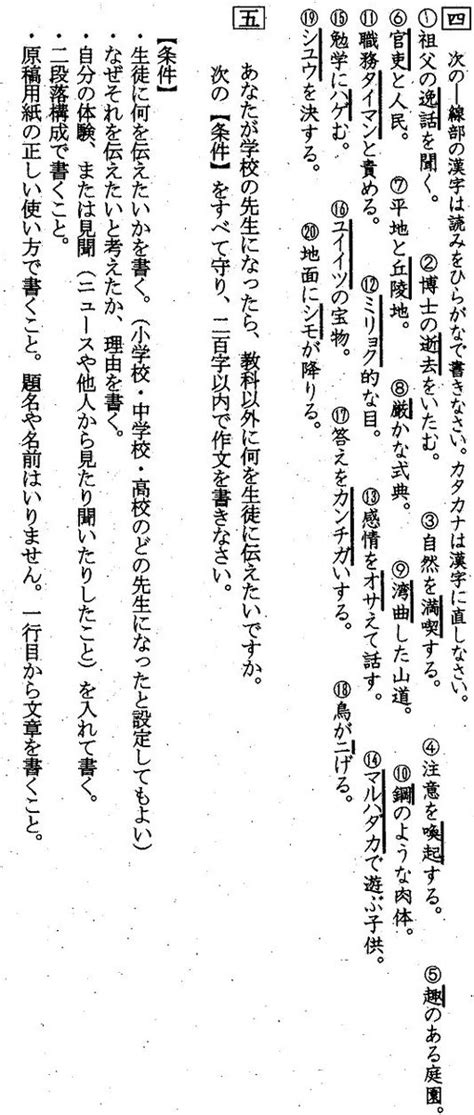 四
次の―線部の漢字は読みをひらがなで書きなさい。カタカナは漢字に直しなさい。
①祖父の逸話を聞く。 ②博士の逝去をいたむ。 ③自然を満喫する。 ④注意を喚起する。 ⑤趣のある庭園。
⑥官吏と人民。 ⑦平地と丘陵地。 ⑧厳かな式典。 ⑨湾曲した山道。 ⑩鋼のような肉体。
⑪職務タイマンと責める。 ⑫ミリョク的な目。 ⑬感情をオサえて話す。 ⑭マルハダカで遊ぶ子供。
⑮勉学にハゲむ。 ⑯ユイイツの宝物。 ⑰答えをカンチガいする。 ⑱鳥がニげる。
⑲シユウを決する。 ⑳地面にシモが降りる。
五
あなたが学校の先生になったら、教科以外に何を生徒に伝えたいですか。
次の【条件】をすべて守り、二百字以内で作文を書きなさい。
【条件】
・生徒に何を伝えたいかを書く。（小学校・中学校・高校のどの先生になったと設定してもよい）
・なぜそれを伝えたいと考えたか、理由を書く。
・自分の体験、または見聞（ニュースや他人から見たり聞いたりしたこと）を入れて書く。
・二段落構成で書くこと。
・原稿用紙の正しい使い方で書くこと。題名や名前はいりません。一行目から文章を書くこと。